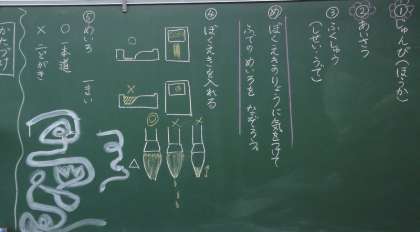 ①じゅんび（ほうか）
②あいさつ
③ふくしゅう
（しせい・ふで）
めぼくえきのりょうに気をつけて
ふでのめいろをなぞろう。
④ぼくえきを入れる
○
×
×
×
◎
△
⑤めいろ 一まい
○ 一本道
× 二どがき
かたづけ